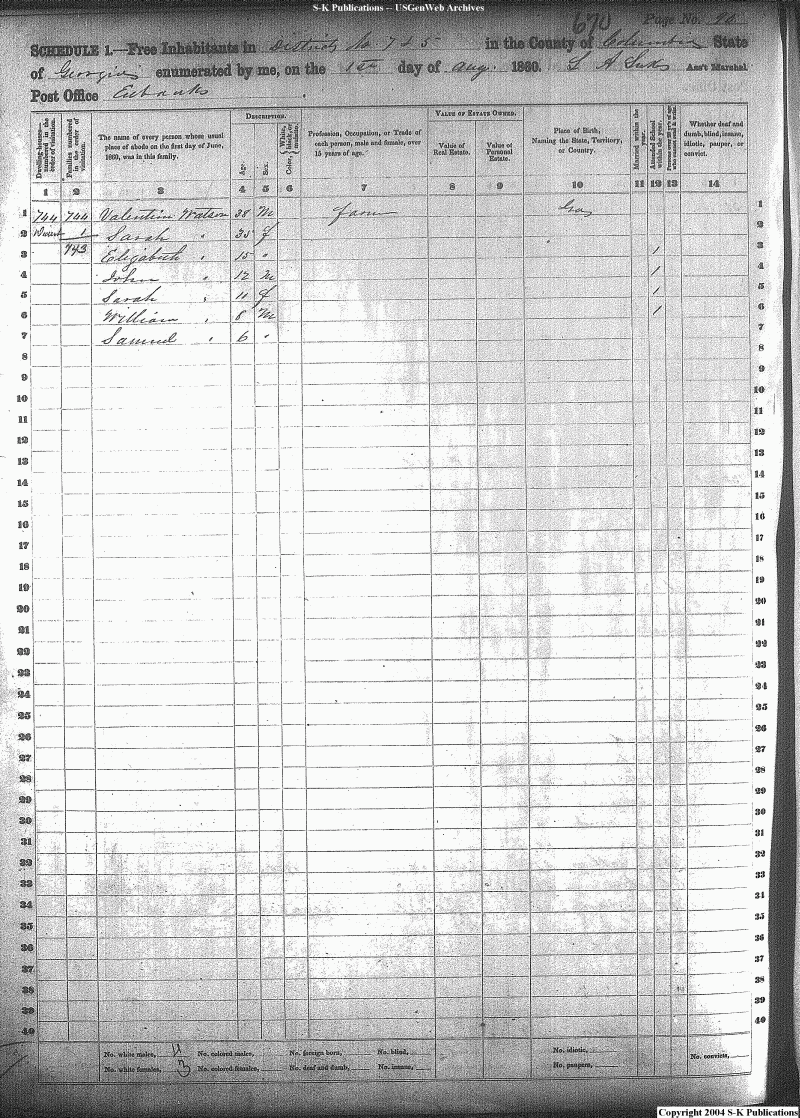 S-K Publications -- USGenWeb Archives
670 Page No. 90
SCHEDULE 1.—Free Inhabitants in District No 7 & 5 in the County of Columbia State
of Georgia enumerated by me, on the 1st day of Aug. 1860. Ass't Marshal
Post Office Eubanks
DESCRIPTION. VALUE OF ESTATE OWNED.
Dwelling-houses—numbered in the order of visitation.
Families numbered in the order of visitation.
The name of every person whose usual place of abode on the first day of June, 1860, was in this family.
Age. Sex. Color, {White, black, or mulatto.
Profession, Occupation, or Trade of each person, male and female, over 15 years of age.
Value of Real Estate. Value of Personal Estate.
Place of Birth, Naming the State, Territory, or Country.
Married within the year.
Attended School within the year.
Whether deaf and dumb, blind, insane, idiotic, pauper, or convict.
1 2 3 4 5 6 7 8 9 10 11 12 13 14
1 744 744 Valentin Watson 38 M farm Geo 1
2 1 Sarah " 35 f 2
3 743 Elizabeth " 15 " 1 3
4 John " 12 M 1 4
5 Sarah " 11 f 1 5
6 William " 8 M 1 6
7 Samuel " 6 " 7
8 8
9 9
10 10
11 11
12 12
13 13
14 14
15 15
16 16
17 17
18 18
19 19
20 20
21 21
22 22
23 23
24 24
25 25
26 26
27 27
28 28
29 29
30 30
31 31
32 32
33 33
34 34
35 35
36 36
37 37
38 38
39 39
40 40
No. white males, 4 No. colored males, No. foreign born, No. blind, No. idiotic, No. convicts,
No. white females, 3 No. colored females, No. deaf and dumb, No. insane, No. paupers,
Copyright 2004 S-K Publications